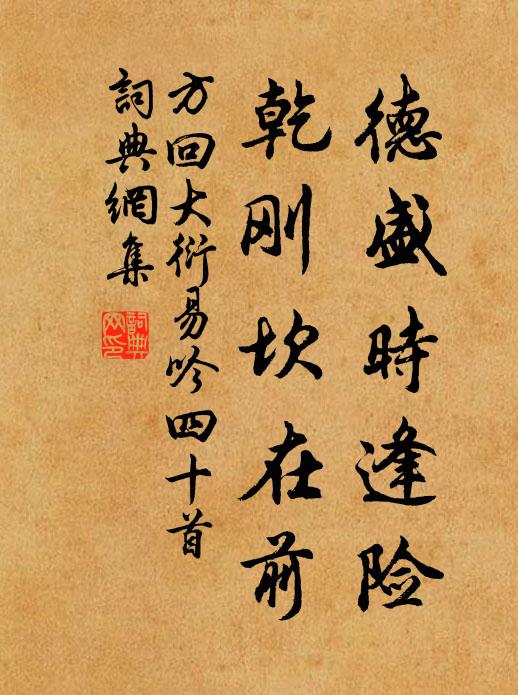 德盛時逢险
乾刚坎在前
方回大衍易吟四十首
詞典網集
詞典網印